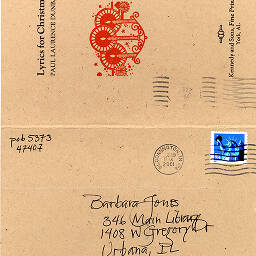 Lyrics for Christm
PAUL LAURENCE DUNB
Kennedy and Sons, Fine Prin
York, Al.
pob 5373
47407
BLOOMINGTON, IN
2001
Barbara Jones
346 Main Library
1408 W Gregory Dr
Urbana, IL